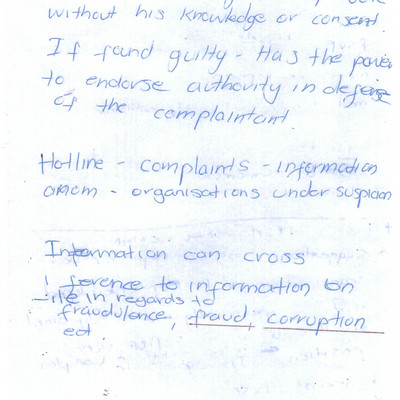 without his knowledge or consent
If found guilty - Has the power
to endorse authority in defense
of the complainant
Hotline - complaints - information
- organisations under suspicion
Information can cross
ference to information on
in regards to
fraudulence, fraud, corruption
ect